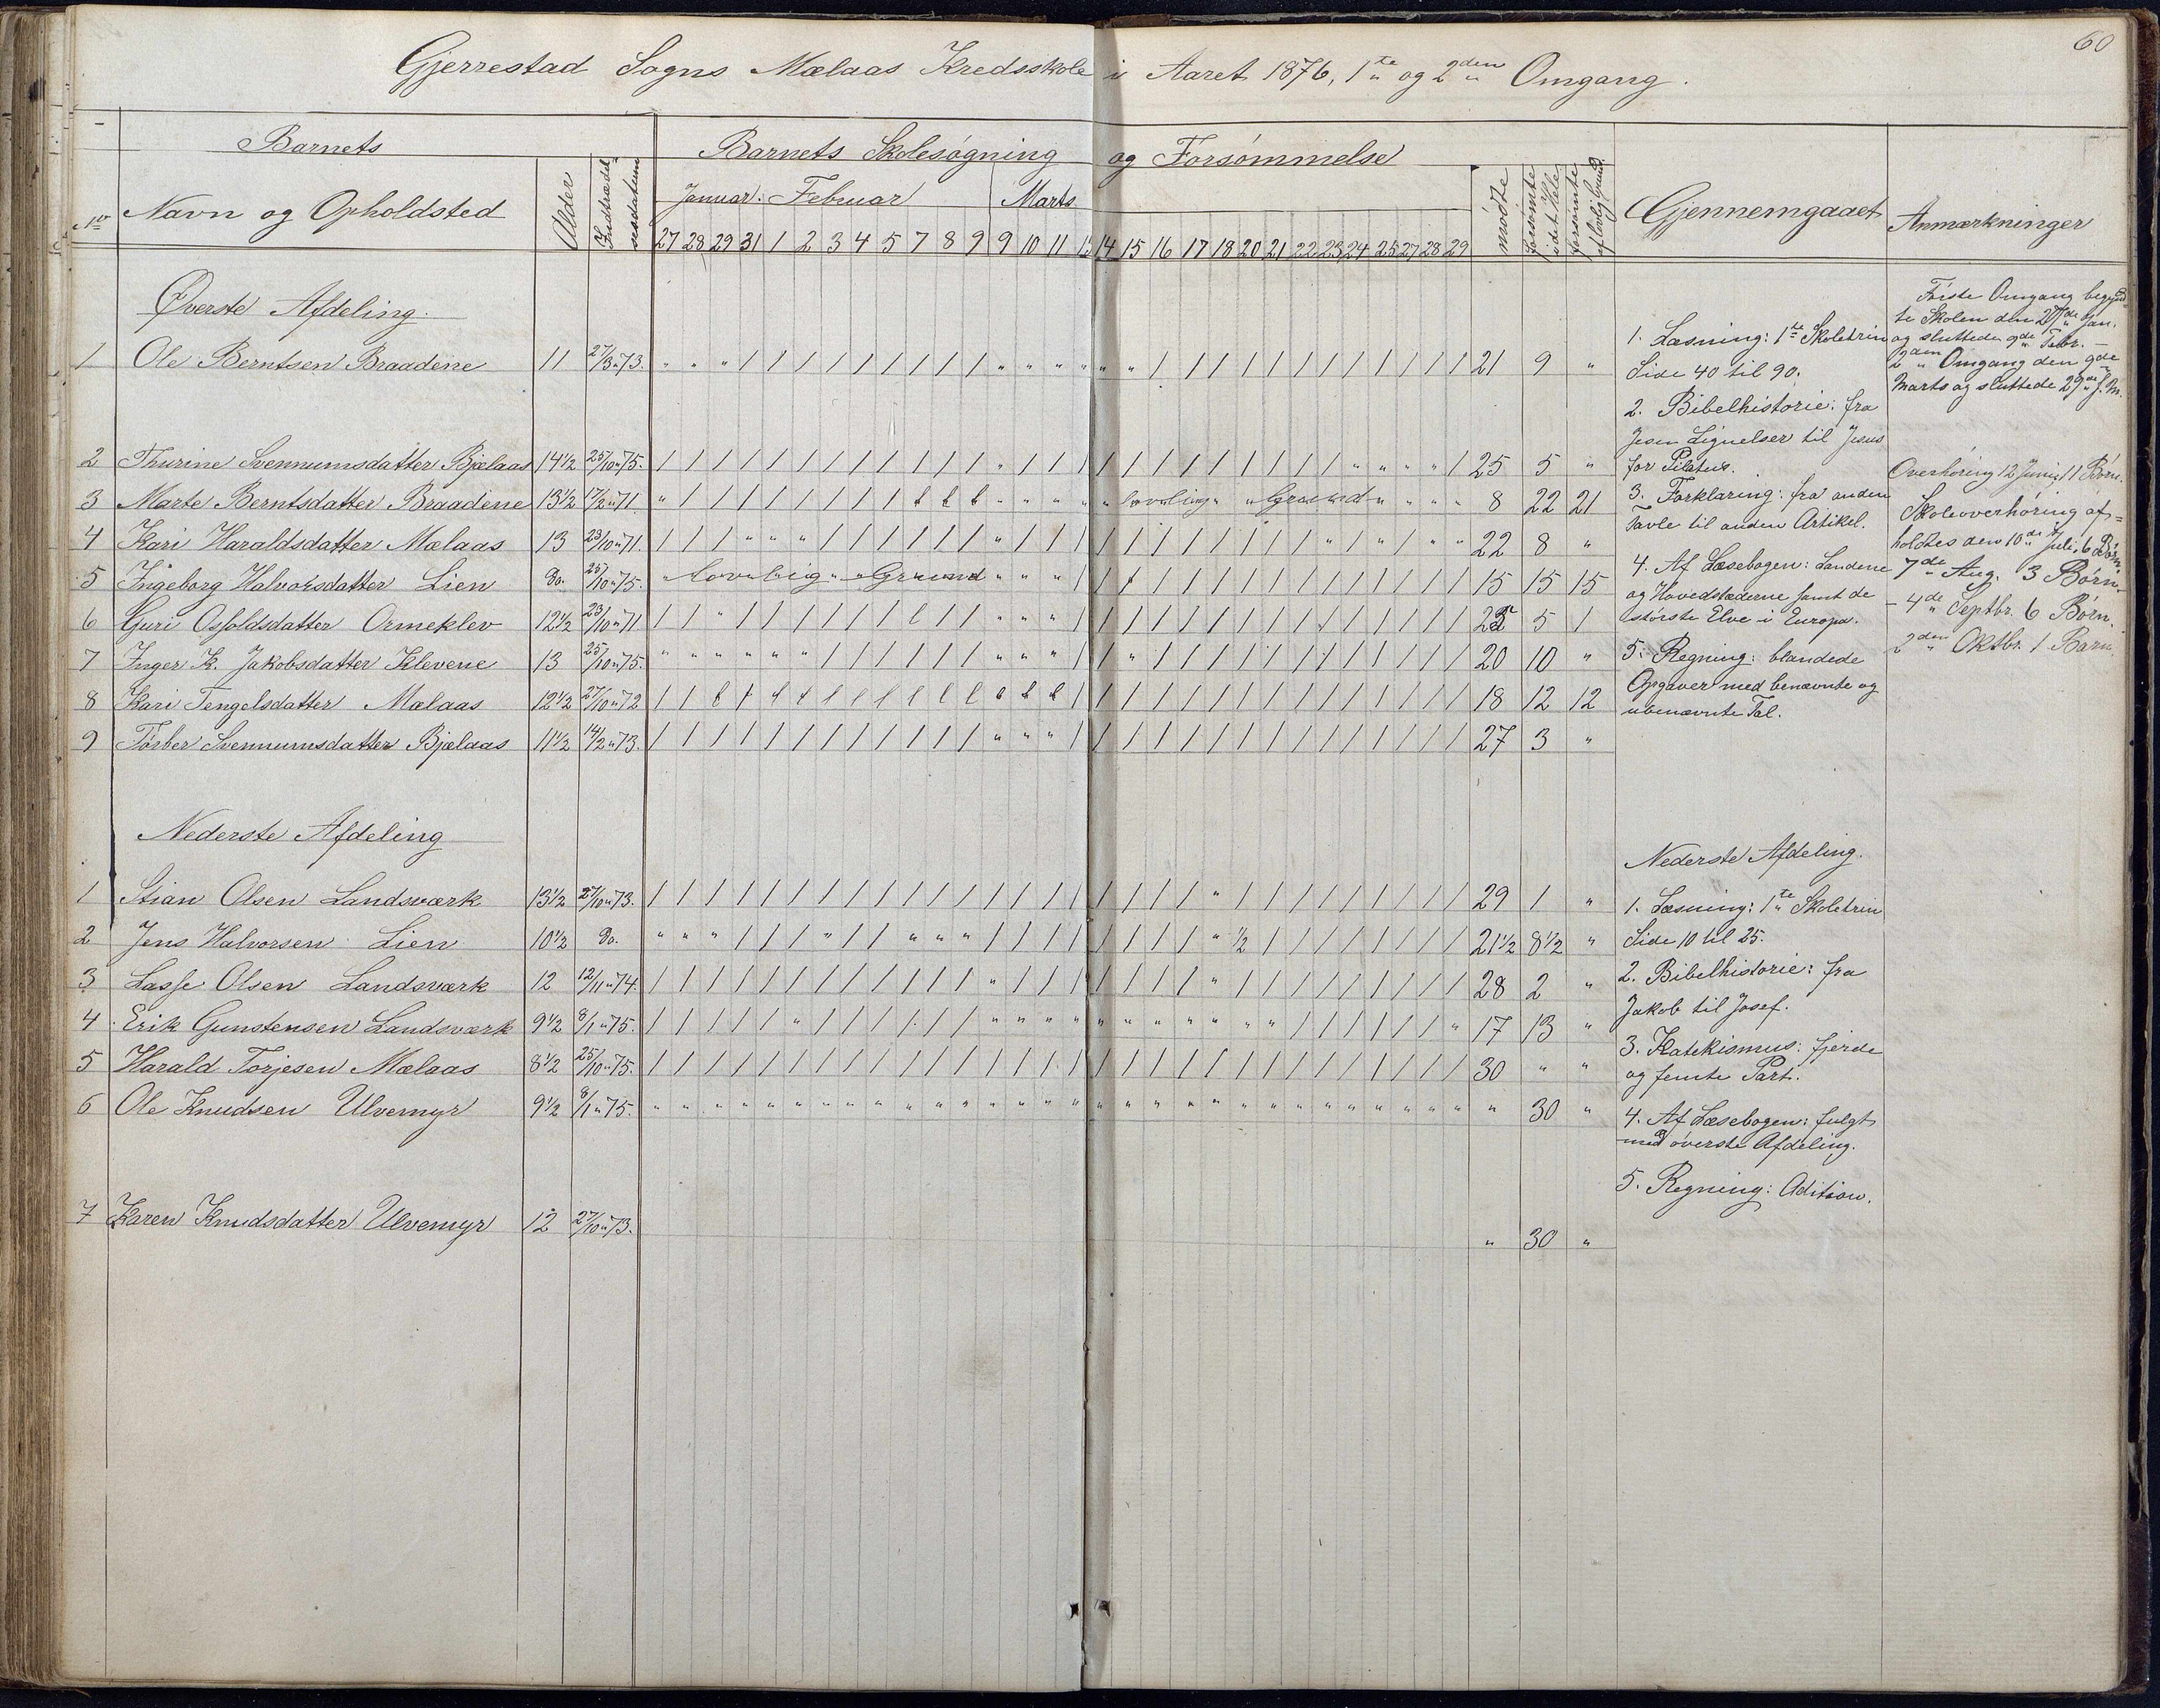 60
Gjerrestad Sogns Mælaas Kredsskole i Aaret 1876, 1te og 2den Omgang.
Barnets
Barnets Skolesøgning og Forsømmelse
No Navn og Opholdsted
Alder
Indtrædelsesdatum
Januar. Februar Marts
27 28 29 31 1 2 3 4 5 7 8 9 9 10 11 13 14 15 16 17 18 20 21 22 23 24 25 27 28 29
mødte
forsømte i det Hele
forsømte af lovlig Grund
Gjennemgaaet
Anmærkninger
Øverste Afdeling.
1 Ole Berntsen Braadene 11 27/3 73. " " " / / / / / / / / / " " " " " " / / / / / / / / / / / / 21 9 "
2 Thurine Svennumsdatter Bjælaas 14 1/2 25/10 75. / / / / / / / / / / / / " / / / / / / / / / / / / " " " " / 25 5 "
3 Marte Berntsdatter Braadene 13 1/2 17/2 71 " / / / / / / / / l l l " " " " " lovlig " " Grund " " " " 8 22 21
4 Kari Haraldsdatter Mælaas 13 23/10 71. / / / " " " / / / / / / " / / / / / / / / / / / " / " / " " 22 8 "
5 Ingeborg Halvorsdatter Lien do. 25/10 75. " lovlig " " Grund " " " / / / / / / / / / / / / / / / 15 15 15
6 Guri Osfoldsdatter Ormeklev 12 1/2 23/10 71 / / " / / / / / / l / / " " " / / / / / / / / / / / / / / / 25 5 1
7 Inger K. Jakobsdatter Klevene 13 25/10 75. " " " " " " / / / / / / " " " / / " / / / / / / / / / / / / 20 10 "
8 Kari Tengelsdatter Mælaas 12 1/2 27/10 72 / / l l l l l l l l l l l l l / / / / / / / / / / / / / / / 18 12 12
9 Tørber Svennumsdatter Bjælaas 11 1/2 14/2 73. / / / / / / / / / / / / " " " / / / / / / / / / / / / / / / 27 3 "
Nederste Afdeling
1 Stian Olsen Landsværk 13 1/2 27/10 73. / / / / / / / / / / / / / / / / / / / / " / / / / / / / / / 29 1 "
2 Jens Halvorsen Lien 10 1/2 do. " " " / / / " / / " " " / / / / / / / / " 1/2 / / / / / / / / 21 1/2 8 1/2 "
3 Lasse Olsen Landsværk 12 12/11 74. / / / / / / / / / / / / " / / / / / / / " / / / / / / / / / 28 2 "
4 Erik Gunstensen Landsværk 9 1/2 8/1 75. / / / / / " / / / / / / " " " " " " " " " " " / / / / / / " 17 13 "
5 Harald Torjesen Mælaas 8 1/2 25/10 75. / / / / / / / / / / / / / / / / / / / / / / / / / / / / / / 30 " "
6 Ole Knudsen Ulvemyr 9 1/2 8/1 75. " " " " " " " " " " " " " " " " " " " " " " " " " " " " " " " 30 "
7 Karen Knudsdatter Ulvemyr 12 27/10 73. " 30 "
1. Læsning: 1te Skoletrin
Side 40 til 90.
2. Bibelhistorie: fra
Jesu Lignelser til Jesus
for Pilatus.
3. Forklaring: fra anden
Tavle til anden Artikel.
4. Af Læsebogen: Landene
og Hovedstæderne samt de
største Elve i Europa.
5. Regning: blandede
Opgaver med benævnte og
ubenævnte Tal.
Nederste Afdeling.
1. Læsning: 1te Skoletrin
Side 10 til 25.
2. Bibelhistorie: fra
Jakob til Josef.
3. Katekismus: fjerde
og femte Part.
4. Af Læsebogen: fulgt
med øverste Afdeling.
5. Regning: Adition.
Første Omgang begynd
te Skolen den 27de Jan.
og sluttede 9de Febr. —
2den Omgang den 9de
Marts og sluttede 29de s. M.
Overhøring 12 Juni, 11 Børn.
Skoleoverhøring af=
holdtes den 10de Juli, 6 Børn.
7de Aug. 3 Børn.
— 4de Septbr. 6 Børn.
2den Oktbr. 1 Barn.